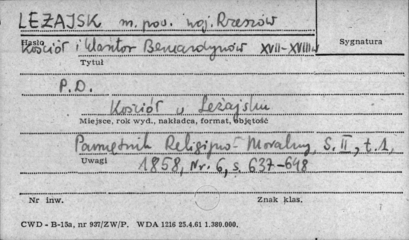 LEŻAJSK m. pow. woj. Rzeszów
Hasło
Kościół i klasztor Bernardynów XVII-XVIII w
Sygnatura
Tytuł
P.D.
Kościół w Leżajsku
Miejsce, rok wyd., nakładca, format, objętość
Pamiętnik Religijno-Moralny, S. II, t. 1,
Uwagi
1858, Nr. 6, s. 637-648
Nr inw.
Znak klas.
CWD - B-15a, nr 937/ZW/P. WDA 1216 25.4.61 1.380.000.